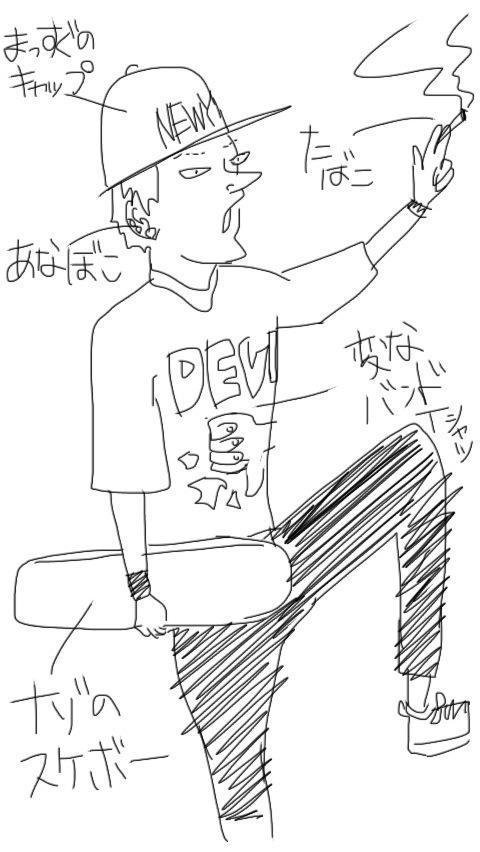 まっすぐの
キャップ
NEWY
たばこ
あなぼこ
DEVI
変な
バンド
Tシャツ
ナゾの
スケボー